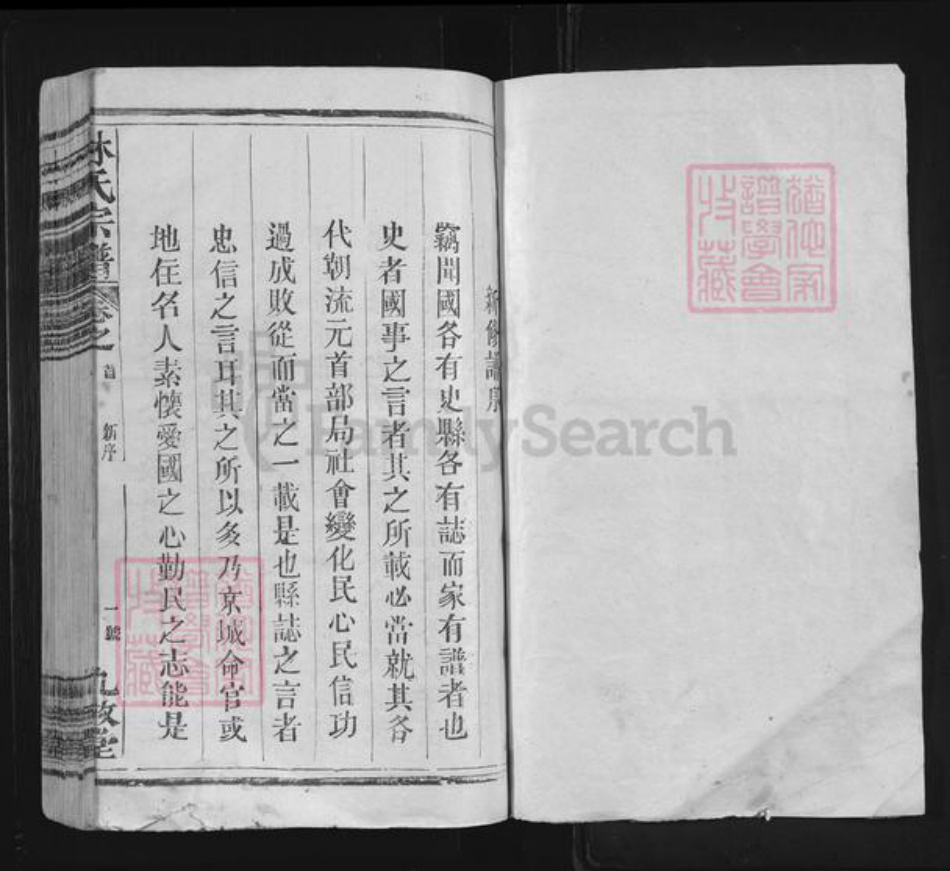 新修譜序
竊聞國各有史縣各有誌而家有譜者也
史者國事之言者其之所載必當就其各
代朝流元首部局社會變化民心民信功
過成敗從而當之一載是也縣誌之言者
忠信之言耳其之所以爻乃京城命官或
地任名人素懷愛國之心勤民之志能是
林氏宗譜
卷之首
新序
一號
九牧堂
猶他家譜學會收藏
猶他家譜學會收藏
FamilySearch